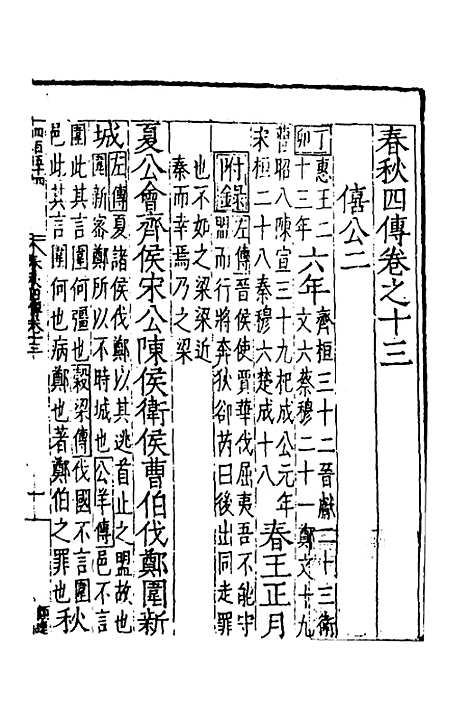 春秋四傳卷之十三
僖公二
丁卯惠王二十三年六年齊桓三十二晉獻二十三衛文六蔡穆二十一鄭文十九
曹昭八陳宣三十九杞成公元年宋桓二十八秦穆六楚成十八春王正月
附錄左傳晉侯使賈華伐屈夷吾不能守盟而行將奔狄郤芮曰後出同走罪
也不如之梁梁近秦而幸焉乃之梁
夏公會齊侯宋公陳侯衛侯曹伯伐鄭圍新
城左傳夏諸侯伐鄭以其逃首止之盟故也圍新密鄭所以不時城也公羊傳邑不言
圍此其言圍何彊也穀梁傳伐國不言圍邑此其言圍何也病鄭也著鄭伯之罪也秋